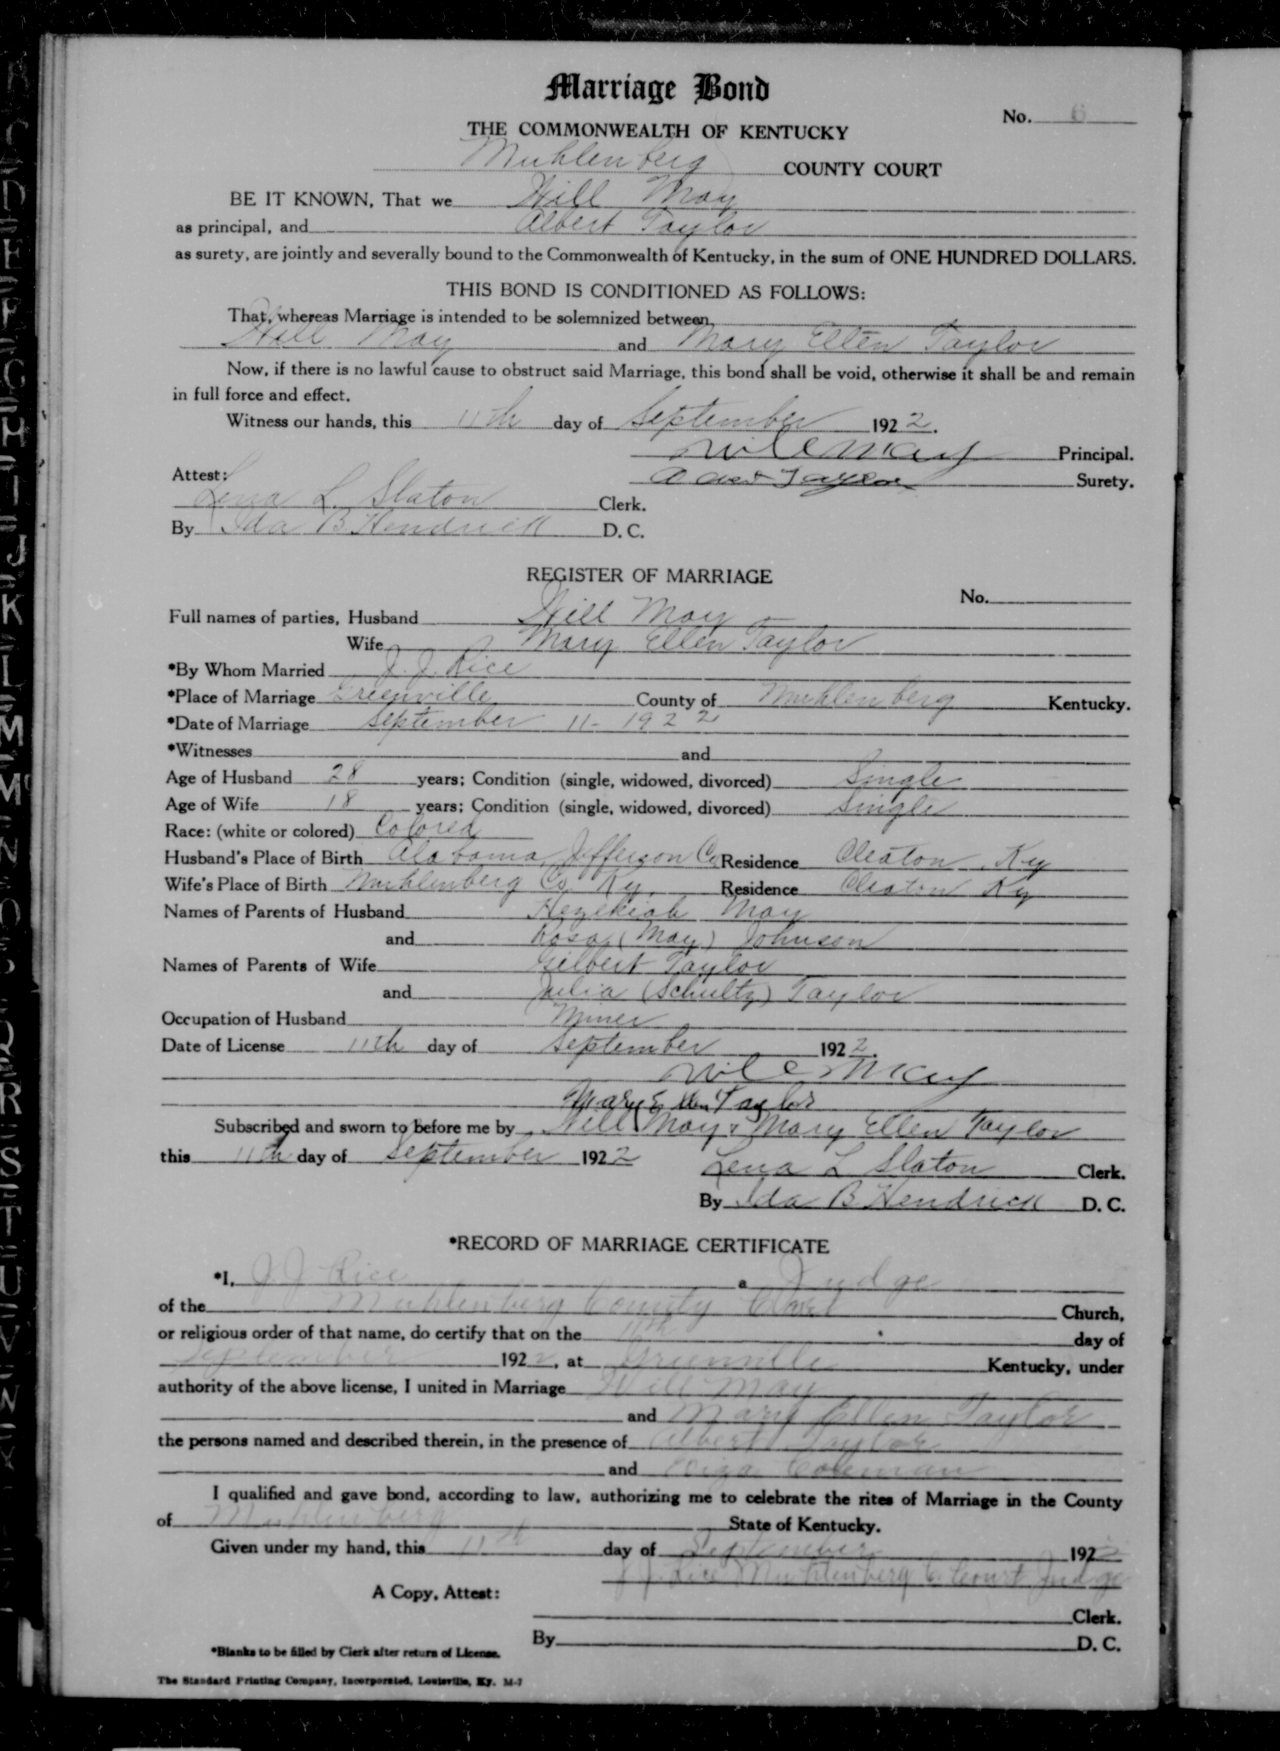 Marriage Bond
No. 6
THE COMMONWEALTH OF KENTUCKY
Muhlenberg COUNTY COURT
BE IT KNOWN, That we Will May
as principal, and Albert Taylor
as surety, are jointly and severally bound to the Commonwealth of Kentucky, in the sum of ONE HUNDRED DOLLARS.
THIS BOND IS CONDITIONED AS FOLLOWS:
That, whereas Marriage is intended to be solemnized between
Will May and Mary Ellen Taylor
Now, if there is no lawful cause to obstruct said Marriage, this bond shall be void, otherwise it shall be and remain
in full force and effect.
Witness our hands, this 11th day of September 1922.
Will May Principal.
Attest:
Albert Taylor Surety.
Lena L. Slaton Clerk.
By Ida B Hendrick D. C.
REGISTER OF MARRIAGE
No.
Full names of parties, Husband Will May
Wife Mary Ellen Taylor
*By Whom Married J. J. Rice
*Place of Marriage Greenville County of Muhlenberg Kentucky.
*Date of Marriage September 11- 1922
*Witnesses and
Age of Husband 28 years; Condition (single, widowed, divorced) Single
Age of Wife 18 years; Condition (single, widowed, divorced) Single
Race: (white or colored) Colored
Husband's Place of Birth Alabama, Jefferson Co Residence Cleaton, Ky
Wife's Place of Birth Muhlenberg Co. Ky. Residence Cleaton Ky
Names of Parents of Husband Hezekiah May
and Rosa (May) Johnson
Names of Parents of Wife Gilbert Taylor
and Julia (Schultz) Taylor
Occupation of Husband Miner
Date of License 11th day of September 1922.
Will May
Mary Ellen Taylor
Subscribed and sworn to before me by Will May & Mary Ellen Taylor
this 11th day of September 1922
Lena L Slaton Clerk.
By Ida B Hendrick D. C.
*RECORD OF MARRIAGE CERTIFICATE
*I, J J Rice a Judge
of the Muhlenberg County Court Church,
or religious order of that name, do certify that on the 11th day of
September 1922, at Greenville Kentucky, under
authority of the above license, I united in Marriage Will May
and Mary Ellen Taylor
the persons named and described therein, in the presence of Albert Taylor
and Coleman
I qualified and gave bond, according to law, authorizing me to celebrate the rites of Marriage in the County
of Muhlenberg State of Kentucky.
Given under my hand, this 11th day of September 1922
J J. Rice Muhlenberg C. Court Judge
A Copy, Attest:
Clerk.
By D. C.
*Blanks to be filled by Clerk after return of License.
The Standard Printing Company, Incorporated, Louisville, Ky. M-7